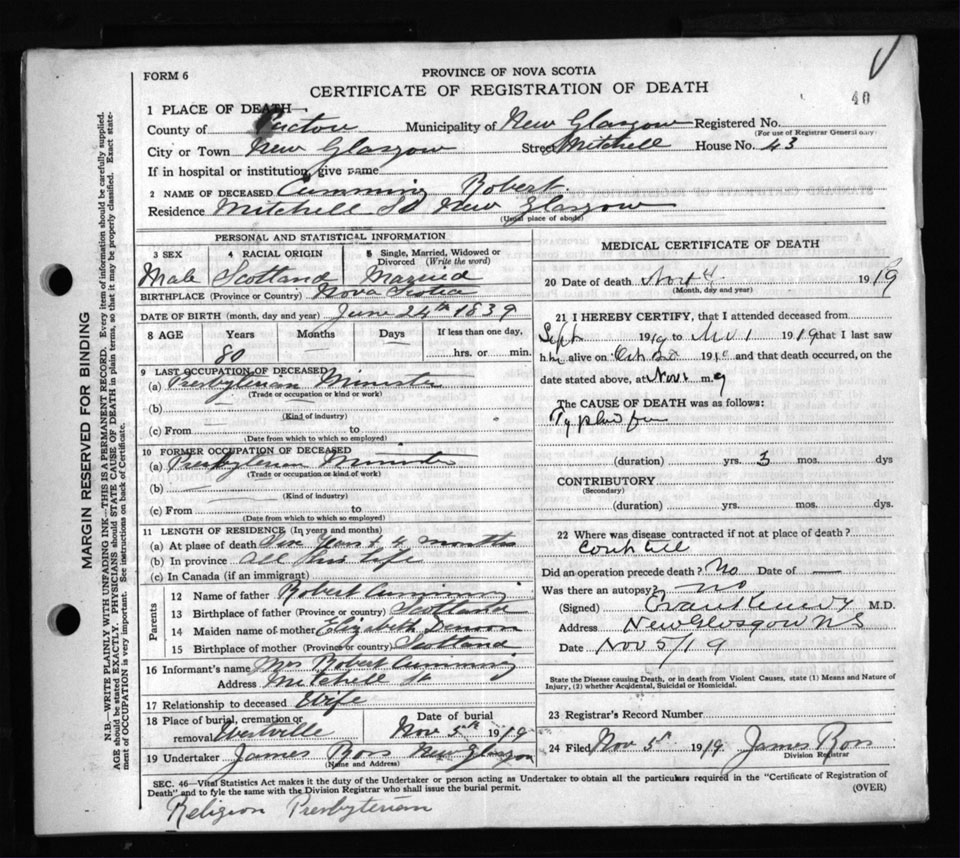 FORM 6
PROVINCE OF NOVA SCOTIA
CERTIFICATE OF REGISTRATION OF DEATH
40
1 PLACE OF DEATH
County of Pictou Municipality of New Glasgow Registered No.
(For use of Registrar General only)
City or Town New Glasgow Street Mitchell House No. 43
If in hospital or institution, give name
2 NAME OF DECEASED Cumming Robert
Residence Mitchell St New Glasgow
(Usual place of abode)
PERSONAL AND STATISTICAL INFORMATION
3 SEX 4 RACIAL ORIGIN 5 Single, Married, Widowed or Divorced (Write the word)
Male Scotland Married
BIRTHPLACE (Province or Country) Nova Scotia
DATE OF BIRTH (month, day and year) June 24th 1839
8 AGE Years Months Days If less than one day,
80 hrs. or min.
9 LAST OCCUPATION OF DECEASED
(a) Presbyterian Minister
(Trade or occupation or kind or work)
(b)
(Kind of industry)
(c) From to
(Date from which to which so employed)
10 FORMER OCCUPATION OF DECEASED
(a) Presbyterian Minister
(Trade or occupation or kind of work)
(b)
(Kind of industry)
(c) From to
(Date from which to which so employed)
11 LENGTH OF RESIDENCE (In years and months)
(a) At place of death Years & 4 months
(b) In province All his life
(c) In Canada (if an immigrant)
Parents
12 Name of father Robert Cumming
13 Birthplace of father (Province or country) Scotland
14 Maiden name of mother Elizabeth
15 Birthplace of mother (Province or country) Scotland
16 Informant's name Mrs Robert Cumming
Address Mitchell St
17 Relationship to deceased Wife
18 Place of burial, cremation or removal Westville Date of burial Nov 5th 1919
19 Undertaker James Ross New Glasgow
(Name and Address)
MEDICAL CERTIFICATE OF DEATH
20 Date of death Nov 4 1919
(Month, day and year)
21 I HEREBY CERTIFY, that I attended deceased from
Sept 1919 to Nov 1 1919 that I last saw
him alive on Oct 19 and that death occurred, on the
date stated above, at m.
The CAUSE OF DEATH was as follows:
Typhoid fever
(duration) yrs. 3 mos. dys
CONTRIBUTORY
(Secondary)
(duration) yrs. mos. dys.
22 Where was disease contracted if not at place of death?
Did an operation precede death? No Date of
Was there an autopsy? no
(Signed) M.D.
Address New Glasgow NS
Date Nov 5/19
State the Disease causing Death, or in death from Violent Causes, state (1) Means and Nature of Injury, (2) whether Accidental, Suicidal or Homicidal.
23 Registrar's Record Number
24 Filed Nov 5th 1919 James Ross
Division Registrar
SEC. 46—Vital Statistics Act makes it the duty of the Undertaker or person acting as Undertaker to obtain all the particulars required in the "Certificate of Registration of
Death" and to fyle the same with the Division Registrar who shall issue the burial permit. (OVER)
Religion Presbyterian
MARGIN RESERVED FOR BINDING
N.B.—WRITE PLAINLY WITH UNFADING INK—THIS IS A PERMANENT RECORD. Every item of information should be carefully supplied.
AGE should be stated EXACTLY. PHYSICIANS should STATE CAUSE OF DEATH in plain terms, so that it may be properly classified. Exact state-
ment of OCCUPATION is very important. See instructions on back of Certificate.